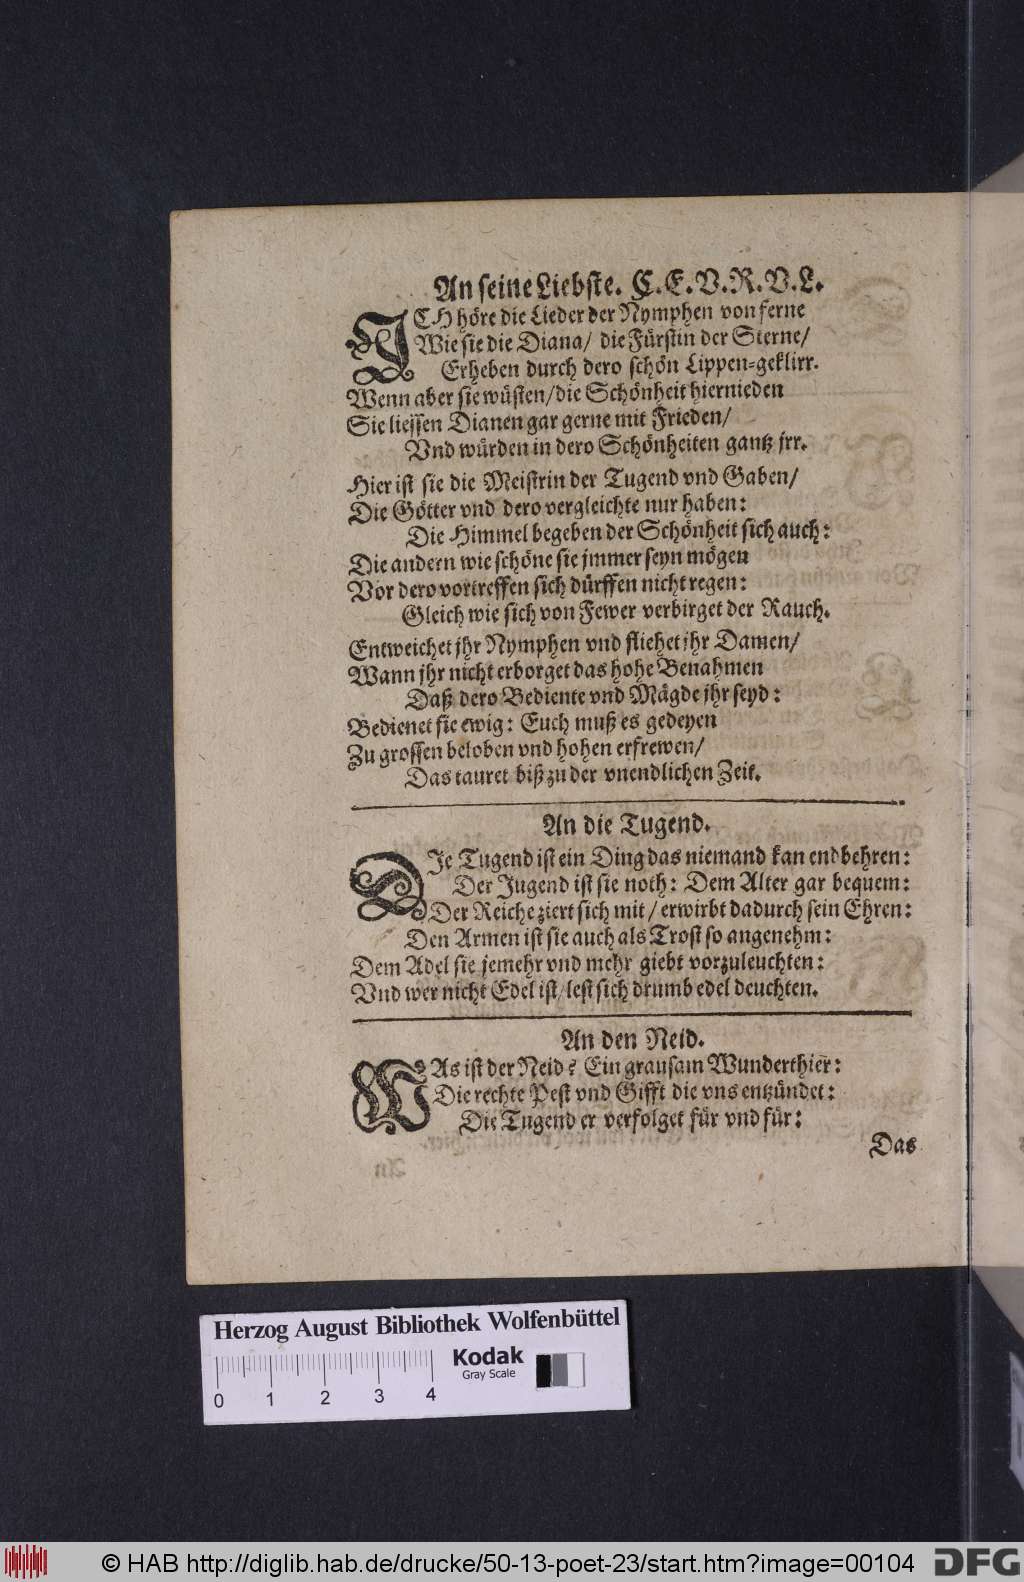 An seine Liebste. C. E. V. R. V. L.
ICH höre die Lieder der Nymphen von ferne
Wie sie die Diana/ die Fürstin der Sterne/
Erheben durch dero schön Lippen-geklirr.
Wenn aber sie wüsten/die Schönheit hiernieden
Sie liessen Dianen gar gerne mit Frieden/
Vnd würden in dero Schönheiten gantz jrr.
Hier ist sie die Meistrin der Tugend vnd Gaben/
Die Götter vnd dero vergleichte nur haben:
Die Himmel begeben der Schönheit sich auch:
Die andern wie schöne sie jmmer seyn mögen
Vor dero vortreffen sich dürffen nicht regen:
Gleich wie sich von Fewer verbirget der Rauch.
Entweichet jhr Nymphen vnd fliehet jhr Damen/
Wann jhr nicht erborget das hohe Benahmen
Daß dero Bediente vnd Mägde jhr seyd:
Bedienet sie ewig: Euch muß es gedeyen
Zu grossen beloben vnd hohen erfrewen/
Das tauret biß zu der vnendlichen Zeit.
An die Tugend.
DIe Tugend ist ein Ding das niemand kan endbehren:
Der Jugend ist sie noth: Dem Alter gar bequem:
Der Reiche ziert sich mit/ erwirbt dadurch sein Ehren:
Den Armen ist sie auch als Trost so angenehm:
Dem Adel sie jemehr vnd mehr giebt vorzuleuchten:
Vnd wer nicht Edel ist/lest sich drumb edel deuchten.
An den Neid.
WAs ist der Neid? Ein grausam Wunderthier:
Die rechte Pest vnd Gifft die vns entzündet:
Die Tugend er verfolget für vnd für:
Das
Herzog August Bibliothek Wolfenbüttel
Kodak
Gray Scale
0 1 2 3 4
© HAB http://diglib.hab.de/drucke/50-13-poet-23/start.htm?image=00104
DFG